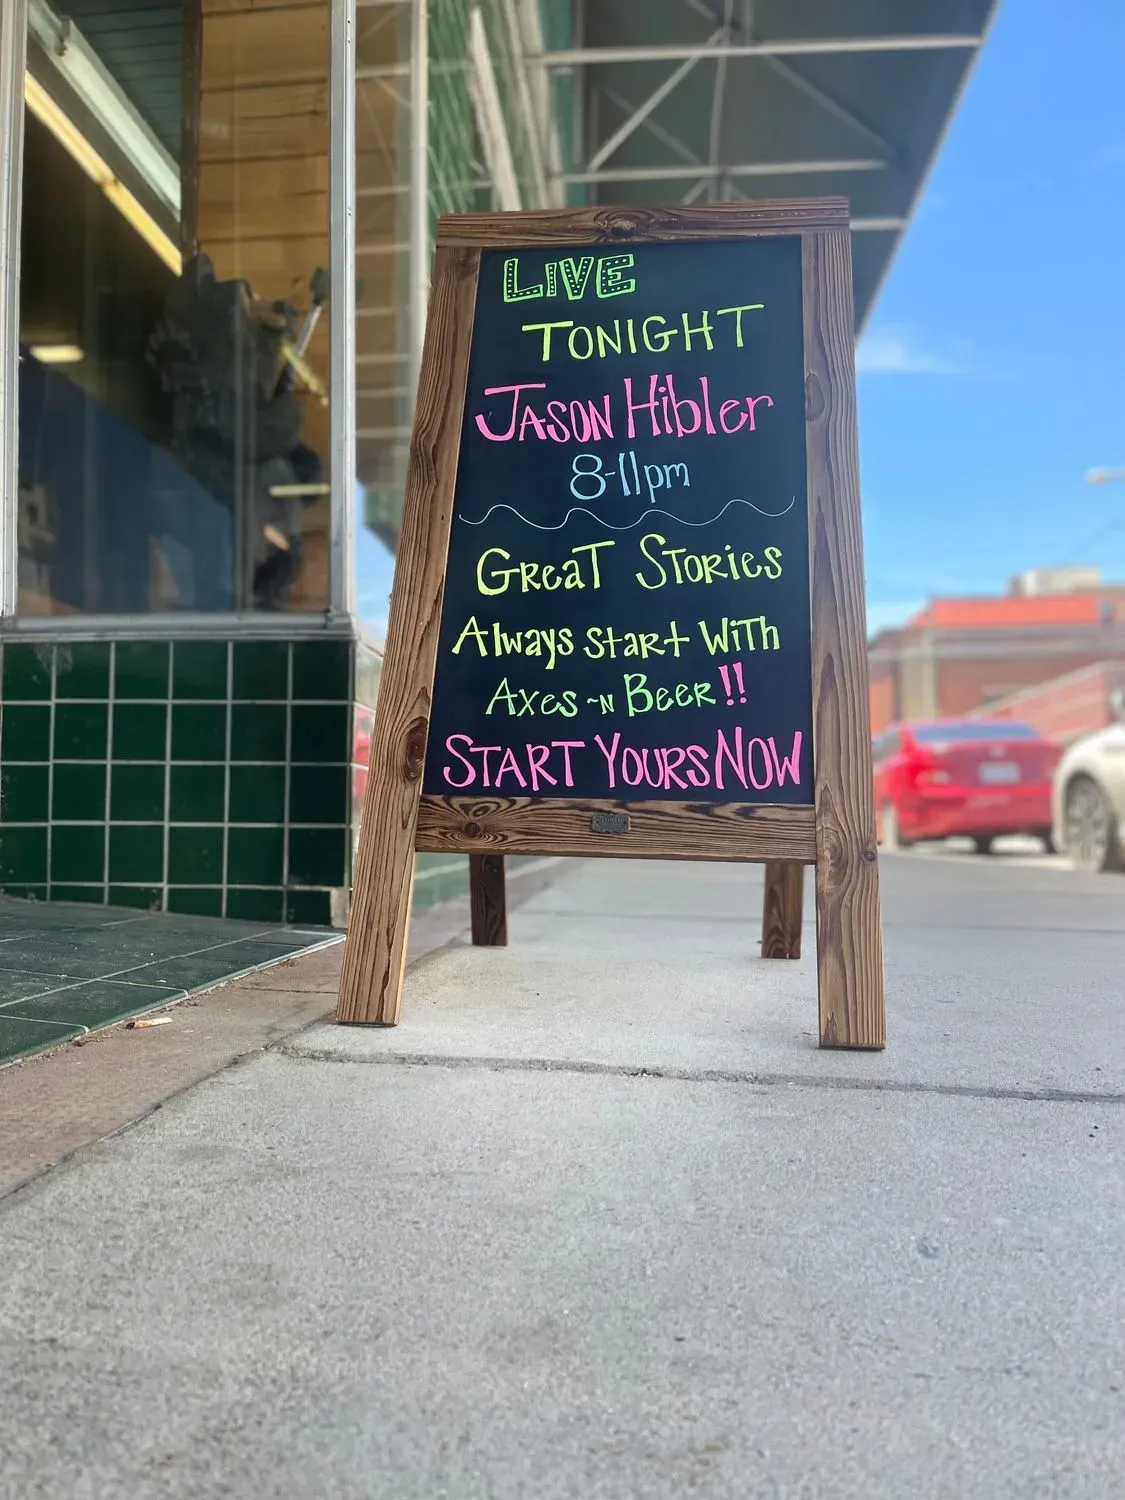 LIVE
TONIGHT
JASON Hibler
8-11pm
GReaT STORies
Always StaRt WiTh
AXes ~N BeeR!!
START YOURS NOW